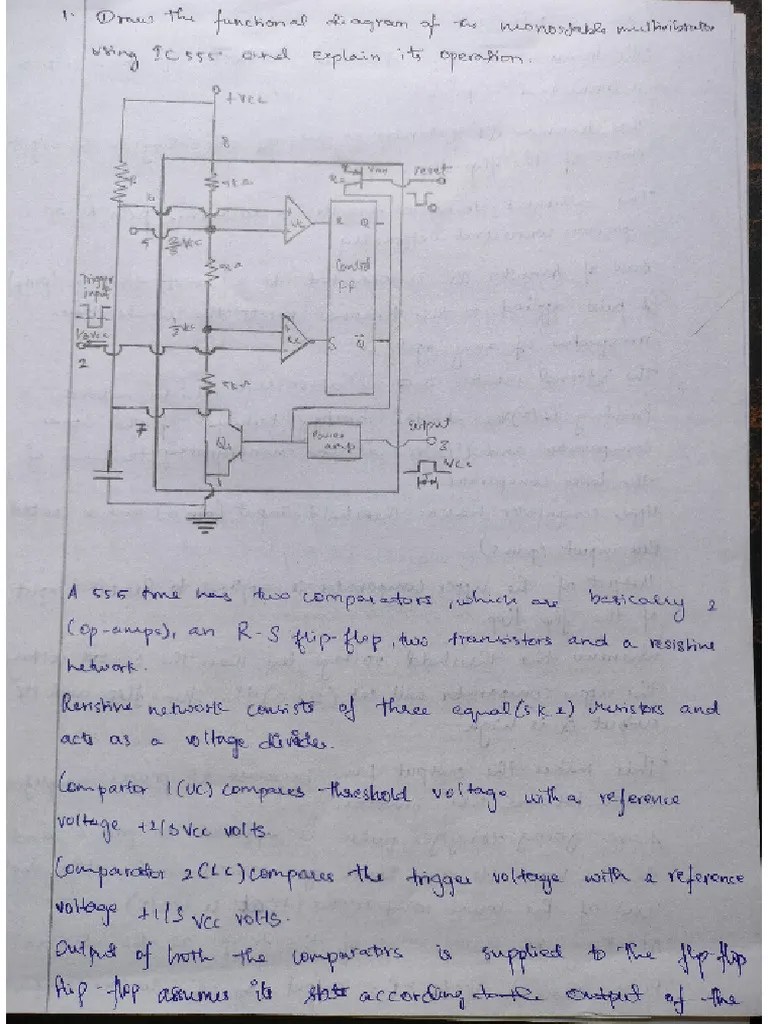 1. Draw the functional diagram of the monostable multivibrator
using IC 555 and explain its operation.
+VCC
8
R
5kΩ
6
5
2/3 VCC
UC
R Q
Control
F.F
5kΩ
Trigger
input
1/3 VCC
2
S Q̄
5kΩ
7
Q1
Power
amp
reset
output
3
VCC
1
A 555 time has two comparators, which are basically 2
(op-amps), an R-S flip-flop, two transistors and a resistine
network.
Resistine network consists of three equal (5k Ω) resistors and
acts as a voltage divider.
Compartor 1 (UC) compares threshold voltage with a reference
voltage +2/3 VCC volts.
Comparator 2 (LC) compares the trigger voltage with a reference
voltage +1/3 VCC volts.
Output of both the comparators is supplied to the flip-flip
flip-flop assumes its state according to the output of the